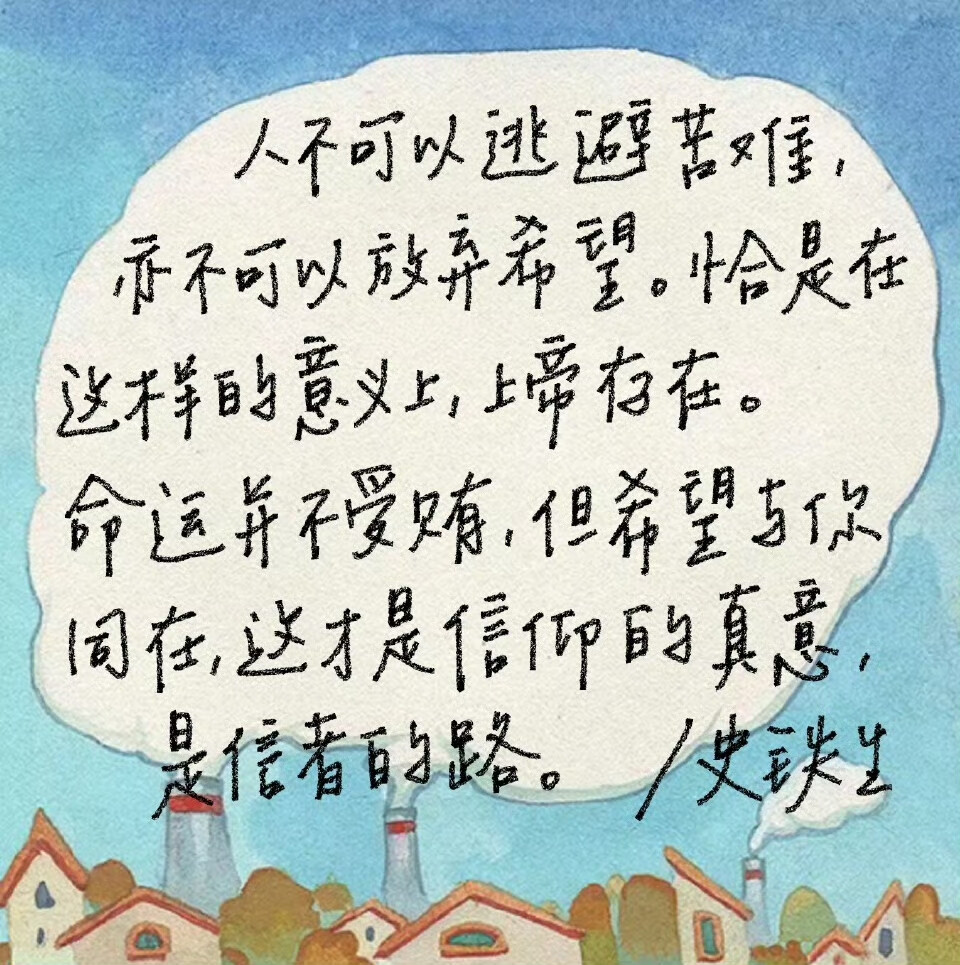 人不可以逃避苦难,
亦不可以放弃希望。恰是在
这样的意义上,上帝存在。
命运并不受贿,但希望与你
同在,这才是信仰的真意,
是信者的路。 /史铁生